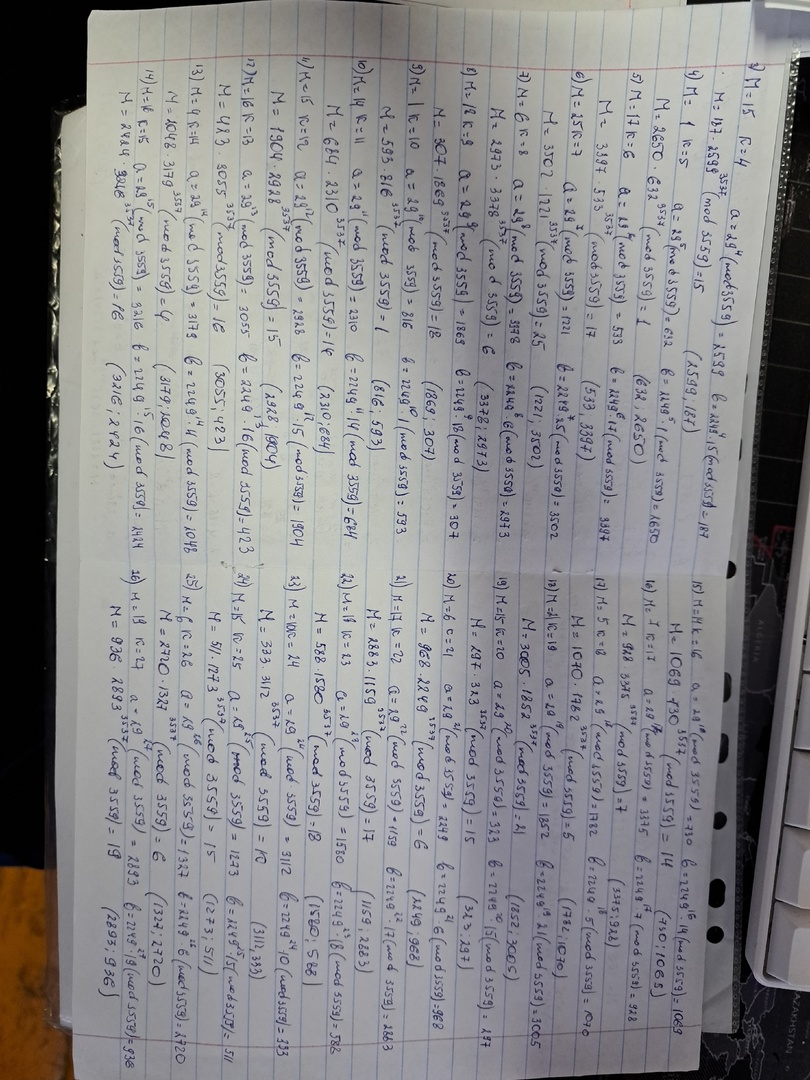 3) M=15 K=4 a=29⁴(mod 3559)=2599 b=2249⁴·15(mod 3559)=187
M=187·2599³⁵³⁷(mod 3559)=15 (2599;187)
4) M=1 K=5 a=29⁵(mod 3559)=632 b=2249⁵·1(mod 3559)=2650
M=2650·632³⁵³⁷(mod 3559)=1 (632;2650)
5) M=17 K=6 a=29⁶(mod 3559)=533 b=2249⁶·17(mod 3559)=3397
M=3397·533³⁵³⁷(mod 3559)=17 (533;3397)
6) M=25 K=7 a=29⁷(mod 3559)=1221 b=2249⁷·25(mod 3559)=3502
M=3502·1221³⁵³⁷(mod 3559)=25 (1221;3502)
7) M=6 K=8 a=29⁸(mod 3559)=3378 b=2249⁸·6(mod 3559)=2973
M=2973·3378³⁵³⁷(mod 3559)=6 (3378;2973)
8) M=18 K=9 a=29⁹(mod 3559)=1869 b=2249⁹·18(mod 3559)=307
M=307·1869³⁵³⁷(mod 3559)=18 (1869;307)
9) M=1 K=10 a=29¹⁰(mod 3559)=816 b=2249¹⁰·1(mod 3559)=593
M=593·816³⁵³⁷(mod 3559)=1 (816;593)
10) M=14 K=11 a=29¹¹(mod 3559)=2310 b=2249¹¹·14(mod 3559)=684
M=684·2310³⁵³⁷(mod 3559)=14 (2310;684)
11) M=15 K=12 a=29¹²(mod 3559)=2928 b=2249¹²·15(mod 3559)=1904
M=1904·2928³⁵³⁷(mod 3559)=15 (2928;1904)
12) M=16 K=13 a=29¹³(mod 3559)=3055 b=2249¹³·16(mod 3559)=423
M=423·3055³⁵³⁷(mod 3559)=16 (3055;423)
13) M=4 K=14 a=29¹⁴(mod 3559)=3179 b=2249¹⁴·4(mod 3559)=2048
M=2048·3179³⁵³⁷(mod 3559)=4 (3179;2048)
14) M=16 K=15 a=29¹⁵(mod 3559)=3216 b=2249¹⁵·16(mod 3559)=2424
M=2424·3216³⁵³⁷(mod 3559)=16 (3216;2424)
15) M=14 K=16 a=29¹⁶(mod 3559)=730 b=2249¹⁶·14(mod 3559)=1069
M=1069·730³⁵³⁷(mod 3559)=14 (730;1069)
16) M=7 K=17 a=29¹⁷(mod 3559)=3375 b=2249¹⁷·7(mod 3559)=928
M=928·3375³⁵³⁷(mod 3559)=7 (3375;928)
17) M=5 K=18 a=29¹⁸(mod 3559)=1782 b=2249¹⁸·5(mod 3559)=1070
M=1070·1782³⁵³⁷(mod 3559)=5 (1782;1070)
18) M=21 K=19 a=29¹⁹(mod 3559)=1852 b=2249¹⁹·21(mod 3559)=3005
M=3005·1852³⁵³⁷(mod 3559)=21 (1852;3005)
19) M=15 K=20 a=29²⁰(mod 3559)=323 b=2249²⁰·15(mod 3559)=297
M=297·323³⁵³⁷(mod 3559)=15 (323;297)
20) M=6 K=21 a=29²¹(mod 3559)=2249 b=2249²¹·6(mod 3559)=968
M=968·2249³⁵³⁷(mod 3559)=6 (2249;968)
21) M=17 K=22 a=29²²(mod 3559)=1159 b=2249²²·17(mod 3559)=2883
M=2883·1159³⁵³⁷(mod 3559)=17 (1159;2883)
22) M=18 K=23 a=29²³(mod 3559)=1580 b=2249²³·18(mod 3559)=588
M=588·1580³⁵³⁷(mod 3559)=18 (1580;588)
23) M=10 K=24 a=29²⁴(mod 3559)=3112 b=2249²⁴·10(mod 3559)=333
M=333·3112³⁵³⁷(mod 3559)=10 (3112;333)
24) M=15 K=25 a=29²⁵(mod 3559)=1273 b=2249²⁵·15(mod 3559)=511
M=511·1273³⁵³⁷(mod 3559)=15 (1273;511)
25) M=6 K=26 a=29²⁶(mod 3559)=1327 b=2249²⁶·6(mod 3559)=2720
M=2720·1327³⁵³⁷(mod 3559)=6 (1327;2720)
26) M=19 K=27 a=29²⁷(mod 3559)=2893 b=2249²⁷·19(mod 3559)=936
M=936·2893³⁵³⁷(mod 3559)=19 (2893;936)
ALGERIA
KAZAKHSTAN